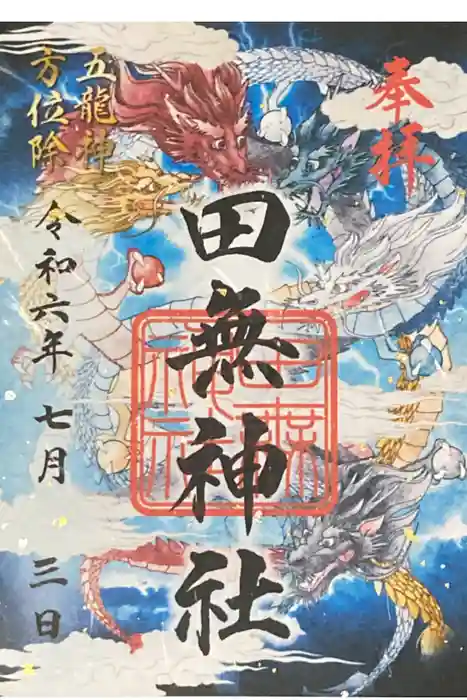 奉拝
田無神社
田無神社
五龍神
方位除
令和六年七月三日